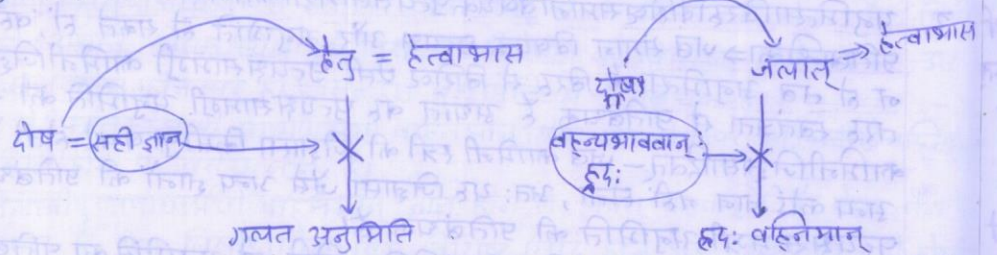 हेतु = हेत्वाभास
दोष = सही ज्ञान
गलत अनुमिति
जलात् ⇒ हेत्वाभास
दोषः
वह्न्यभाववान्
ह्रदः
ह्रदः वह्निमान्